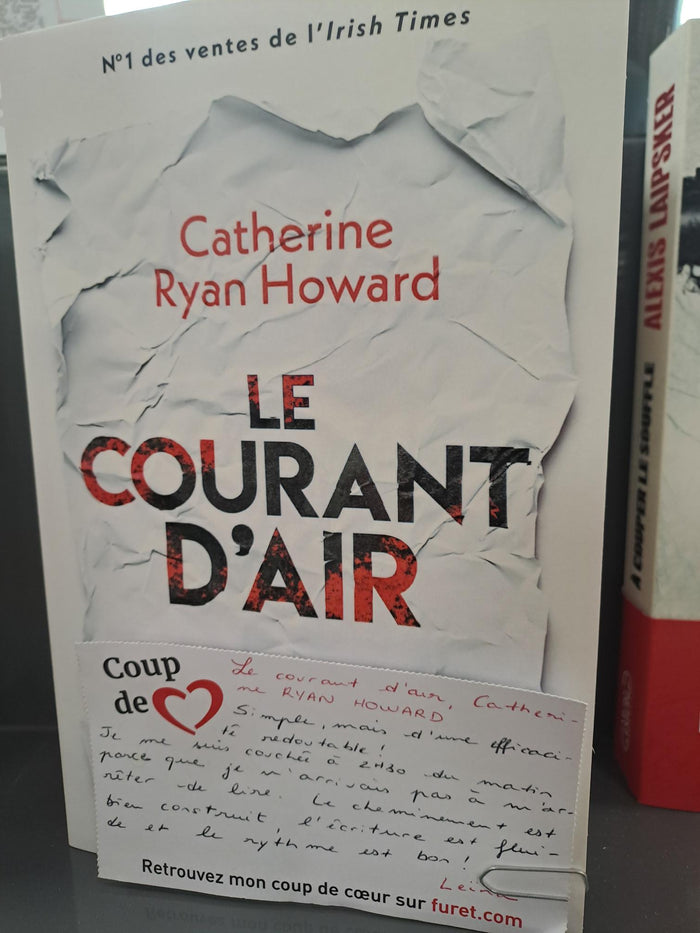 N°1 des ventes de l'Irish Times
Catherine
Ryan Howard
LE
COURANT
D'AIR
Coup
de
Le courant d'air, Catheri-
ne RYAN HOWARD
Simple, mais d'une efficaci-
té redoutable !
Je me suis couchée à 2H30 du matin
parce que je n'arrivais pas à m'ar-
rêter de lire. Le cheminement est
bien construit, l'écriture est flui-
de et le rythme est bon !
Leïna
Retrouvez mon coup de cœur sur furet.com
ALEXIS LAIPSKER
À COUPER LE SOUFFLE